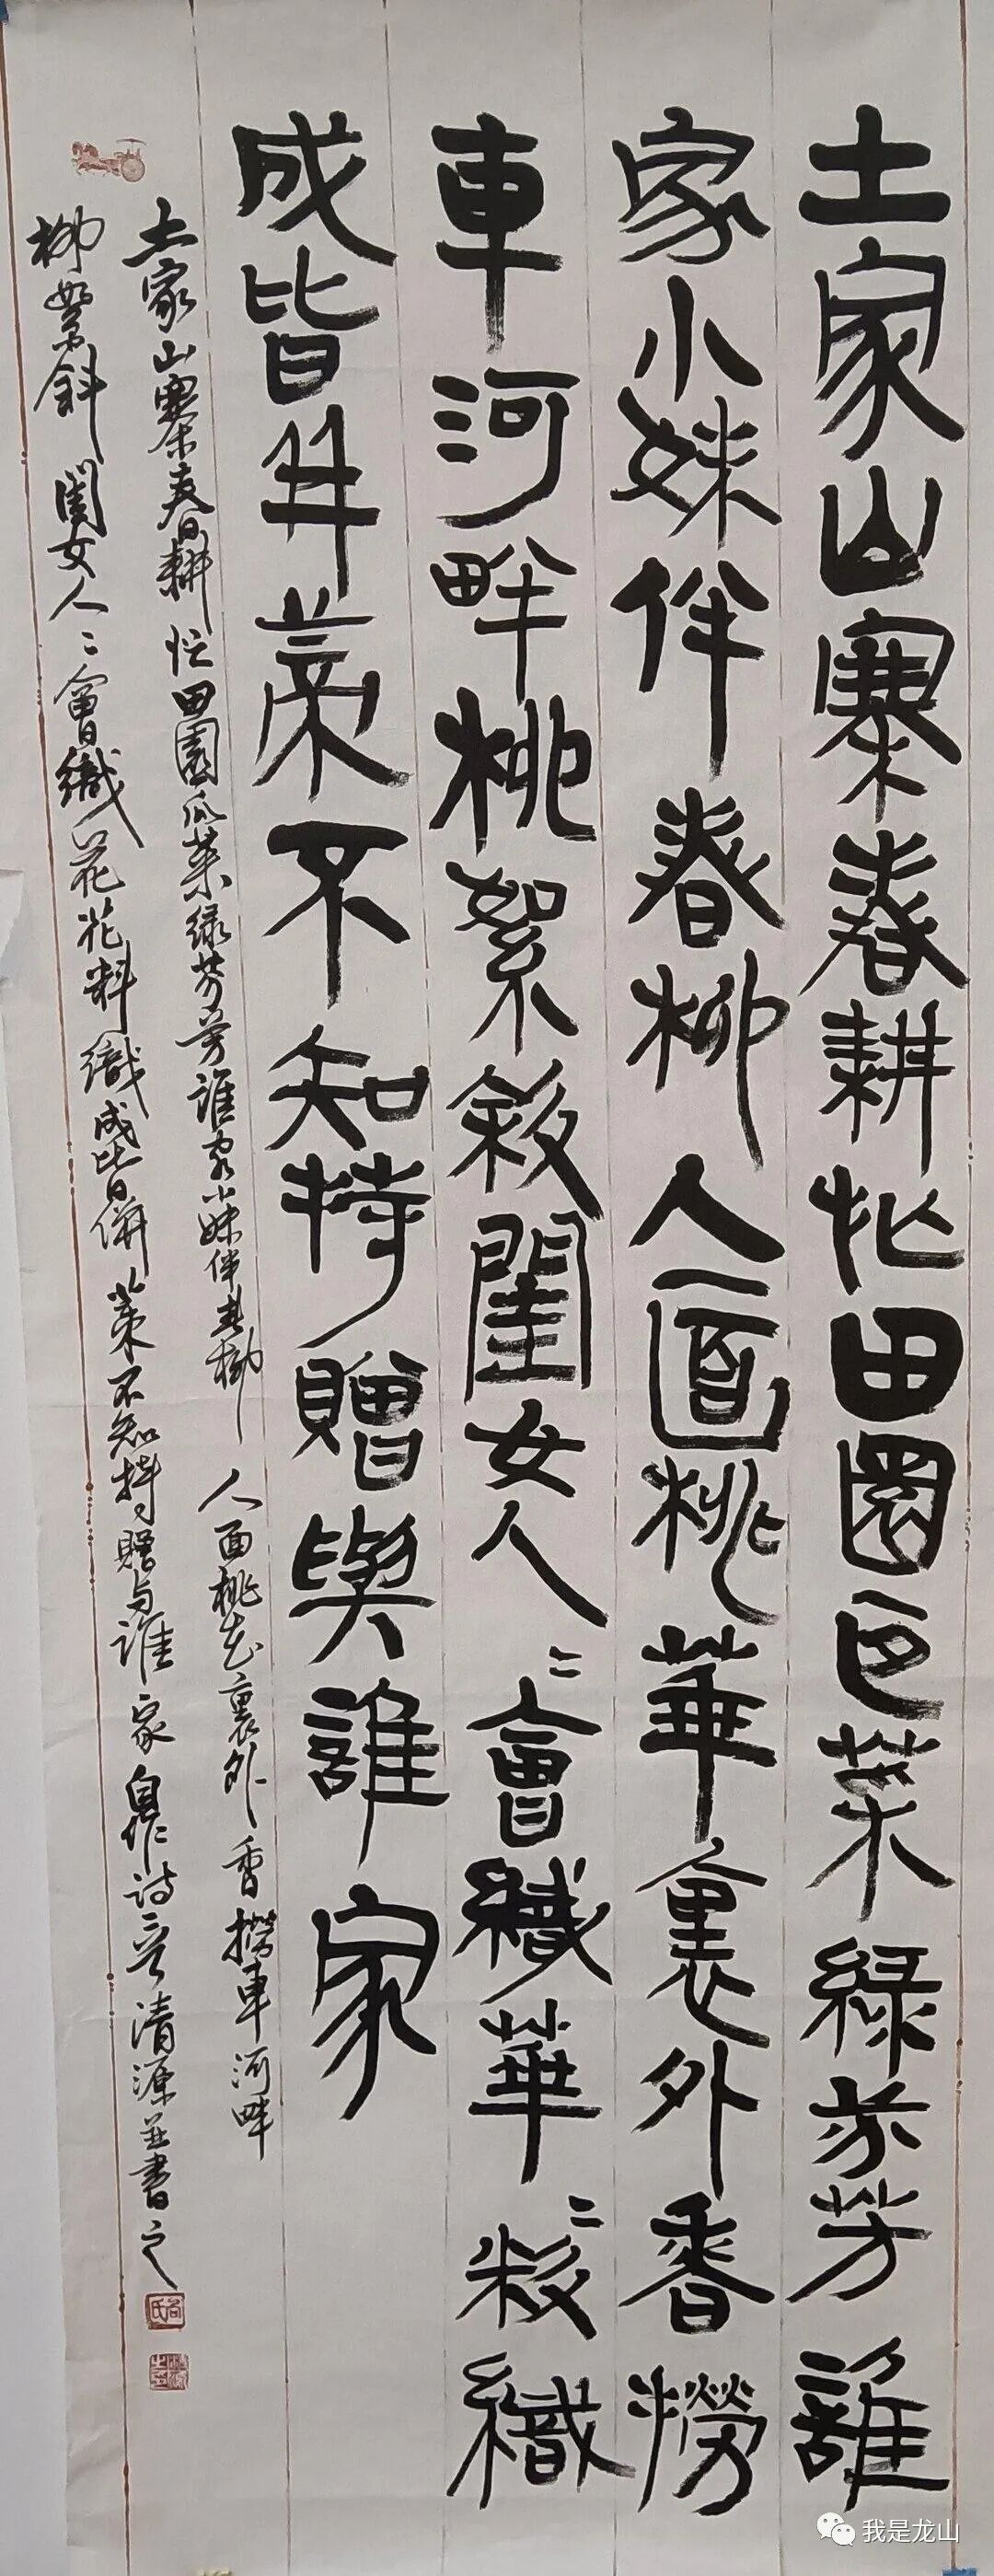 土家山寨春耕忙田園瓜菜綠芬芳誰
家小妹伴春柳人面桃華裏外香撈
車河畔桃絮斜閨女人〻會織華〻料織
成皆并蒂不知持贈與誰家
土家山寨春耕忙田園瓜菜绿芬芳誰家小妹伴春柳人面桃花裏外香撈車河畔
柳絮斜閨女人〻會織花花料織成皆併蒂不知持贈与誰家自作诗二首清源並書之
我是龙山